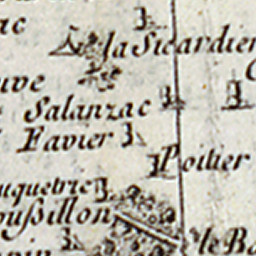 ac
la Sicardier
uve
Salanzac
Favier
Poitier
uquetrie
oussillon
le Ba